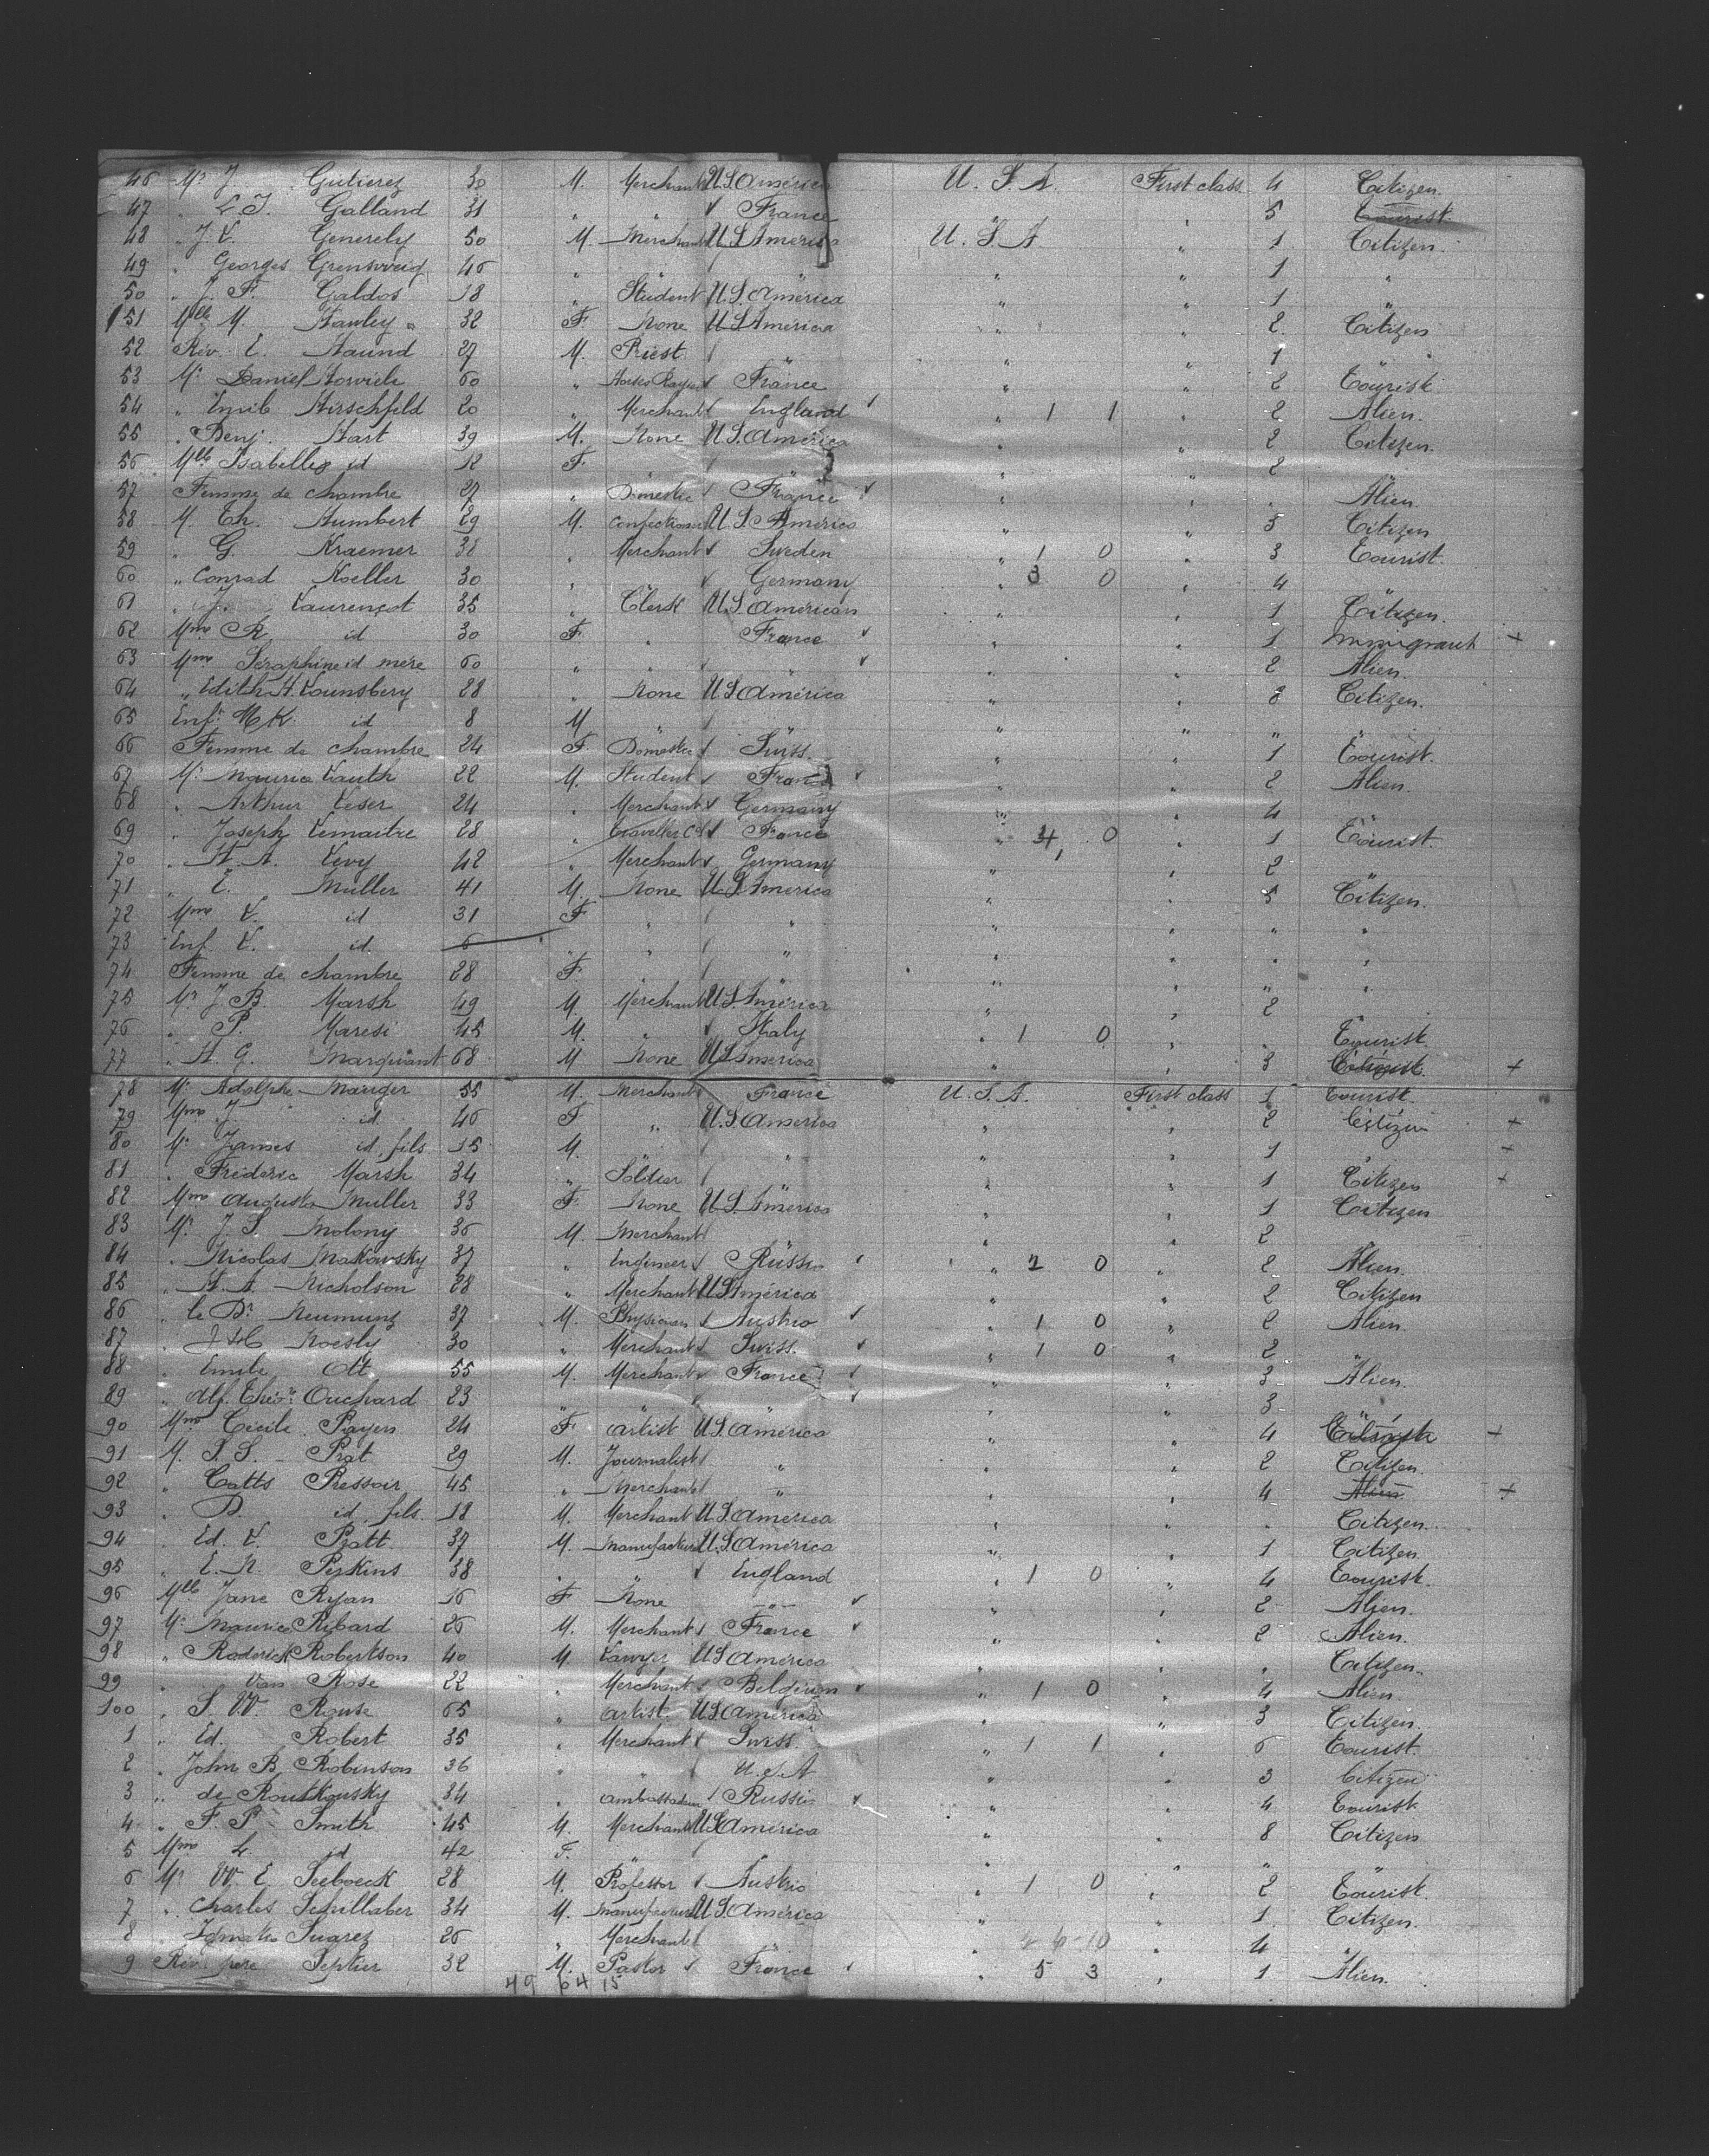 46 Mr J. Gutierez 30 M. Merchant U.S. América U.S.A. First class 4 Citizen.
47 " L.J. Galland 31 " " France " 5 Tourist
48 " J.V. Generely 50 M. Merchant U.S. América U.S.A " 1 Citizen.
49 " Georges 46 " " " " " 1 "
50 " J. F. Galdos 18 " Student U.S. América " " 1 "
51 Mlle M. Hawley 32 F. None U.S. América " " 2 Citizen
52 Rev. E. Haund 27 M. Priest " " " 1 "
53 Mr Daniel 60 " France " " 2 Tourist
54 " Emile Hirschfeld 20 " Merchant England " 1 1 " 2 Alien.
55 " Benj. Hart 39 M. None U.S. América " " 2 Citizen.
56 Mlle Isabelle id 12 F. " " " " 2 "
57 Femme de chambre 27 " Domestic France " " " Alien.
58 M. Th. Humbert 29 M. Confectioner U.S. América " " 5 Citizen
59 " G. Kraemer 38 " Merchant Sweden " 1 0 " 3 Tourist.
60 " Conrad Koeller 30 " " Germany " 3 0 " 4 "
61 " J. Laurençot 35 " Clerk U.S. American " " 1 Citizen.
62 Mme R. id 30 F. " France " " 1 Immigrant +
63 Mme Séraphine id mère 60 " " " " " 2 Alien.
64 " Edith H. Lounsbery 28 " None U.S. América " " 8 Citizen.
65 Enft M K. id 8 M " " " " " "
66 Femme de chambre 24 F. Domestic Swiss. " " 1 Tourist.
67 Mr Maurice Lauth 22 M. Student France " " 2 Alien.
68 " Arthur Leser 24 " Merchant Germany " " 4 "
69 " Joseph Lemaitre 28 " Traveller France " 4 0 " 1 Tourist.
70 " H. A. Levy 42 " Merchant Germany " " 2 "
71 " E. Muller 41 M. None U.S. America " " 5 Citizen.
72 Mme V. id 31 F " " " " " "
73 Enf. V. id. 6 " " " " " " "
74 Femme de chambre 28 F. " " " " " "
75 Mr J. B. Marsh 49 M Merchant U.S. América " " 2 "
76 " P. Maresi 45 M. " Italy " 1 0 " " Tourist.
77 " H. G. Marquant 68 M None U.S. America " " 3 +
78 Mr Adolphe Mauger 55 M. Merchant France U.S.A. First class 1 Tourist.
79 Mme J. id. 46 F " U.S. America " " 2 Citizen +
80 Mr James id. fils 15 M. " " " " 1 " -
81 " Frederic Marsh 34 " Soldier " " " 1 Citizen +
82 Mme Augusta Muller 33 F. None U.S. América " " 1 Citizen
83 Mr J. S. Molony 36 M. Merchant " " " 2 "
84 " Nicolas Makowsky 37 " Engineer Russia " 2 0 " 2 Alien.
85 " H. A. Nicholson 28 " Merchant U.S. América " " 2 Citizen
86 " le Dr Neumung 37 M. Physician Austria " 1 0 " 2 Alien.
87 " Noesly 30 " Merchant Swiss. " 1 0 " 2 "
88 " Emile Ott 55 M. Merchant France " " 3 Alien.
89 " Alf. Théo. Ouchard 23 " " " " " 3 "
90 Mme Cécile Payen 24 F. artist U.S. América " " 4 +
91 M. S. S. Prat 29 M. Journalist " " " 2 Citizen.
92 " Catts Pressoir 45 " Merchant " " " 4 Alien +
93 " D. id. fils. 18 M. Merchant U.S. America " " " Citizen.
94 " Ed. V. Pratt 37 M. Manufacturer U.S. América " " 1 Citizen
95 " E. N. Perkins 38 " " England " 1 0 " 4 Tourist.
96 Mlle Jane Ryan 16 F None " " " 2 Alien.
97 Mr Maurice Ribard 26 M. Merchant France " " 2 Alien.
98 " Roderick Robertson 40 M. Lawyer U.S. América " " " Citizen.
99 " Van Rose 22 " Merchant Belgium " 1 0 " 4 Alien.
100 " S. W. Rouse 65 " artist U.S. América " " 3 Citizen.
1 " Ed. Robert 35 " Merchant Swiss. " 1 1 " 6 Tourist.
2 " John B. Robinson 36 " " U.S.A " " 3 Citizen
3 " de Routkowsky 34 " ambassadeur Russia " " 4 Tourist
4 " F. P. Smith 45 M. Merchant U.S. América " " 8 Citizen
5 Mme L. id 42 F. " " " " " "
6 Mr W. E. Seeboeck 28 M. Professor Austria " 1 0 " 2 Tourist.
7 " Charles Schillaber 34 M. Manufacturer U.S. América " " 1 Citizen.
8 " Suarez 26 " Merchant " " 6 10 " 4 "
9 Rev. père Septier 32 M. Pastor France " 5 3 " 1 Alien.
49 64 15